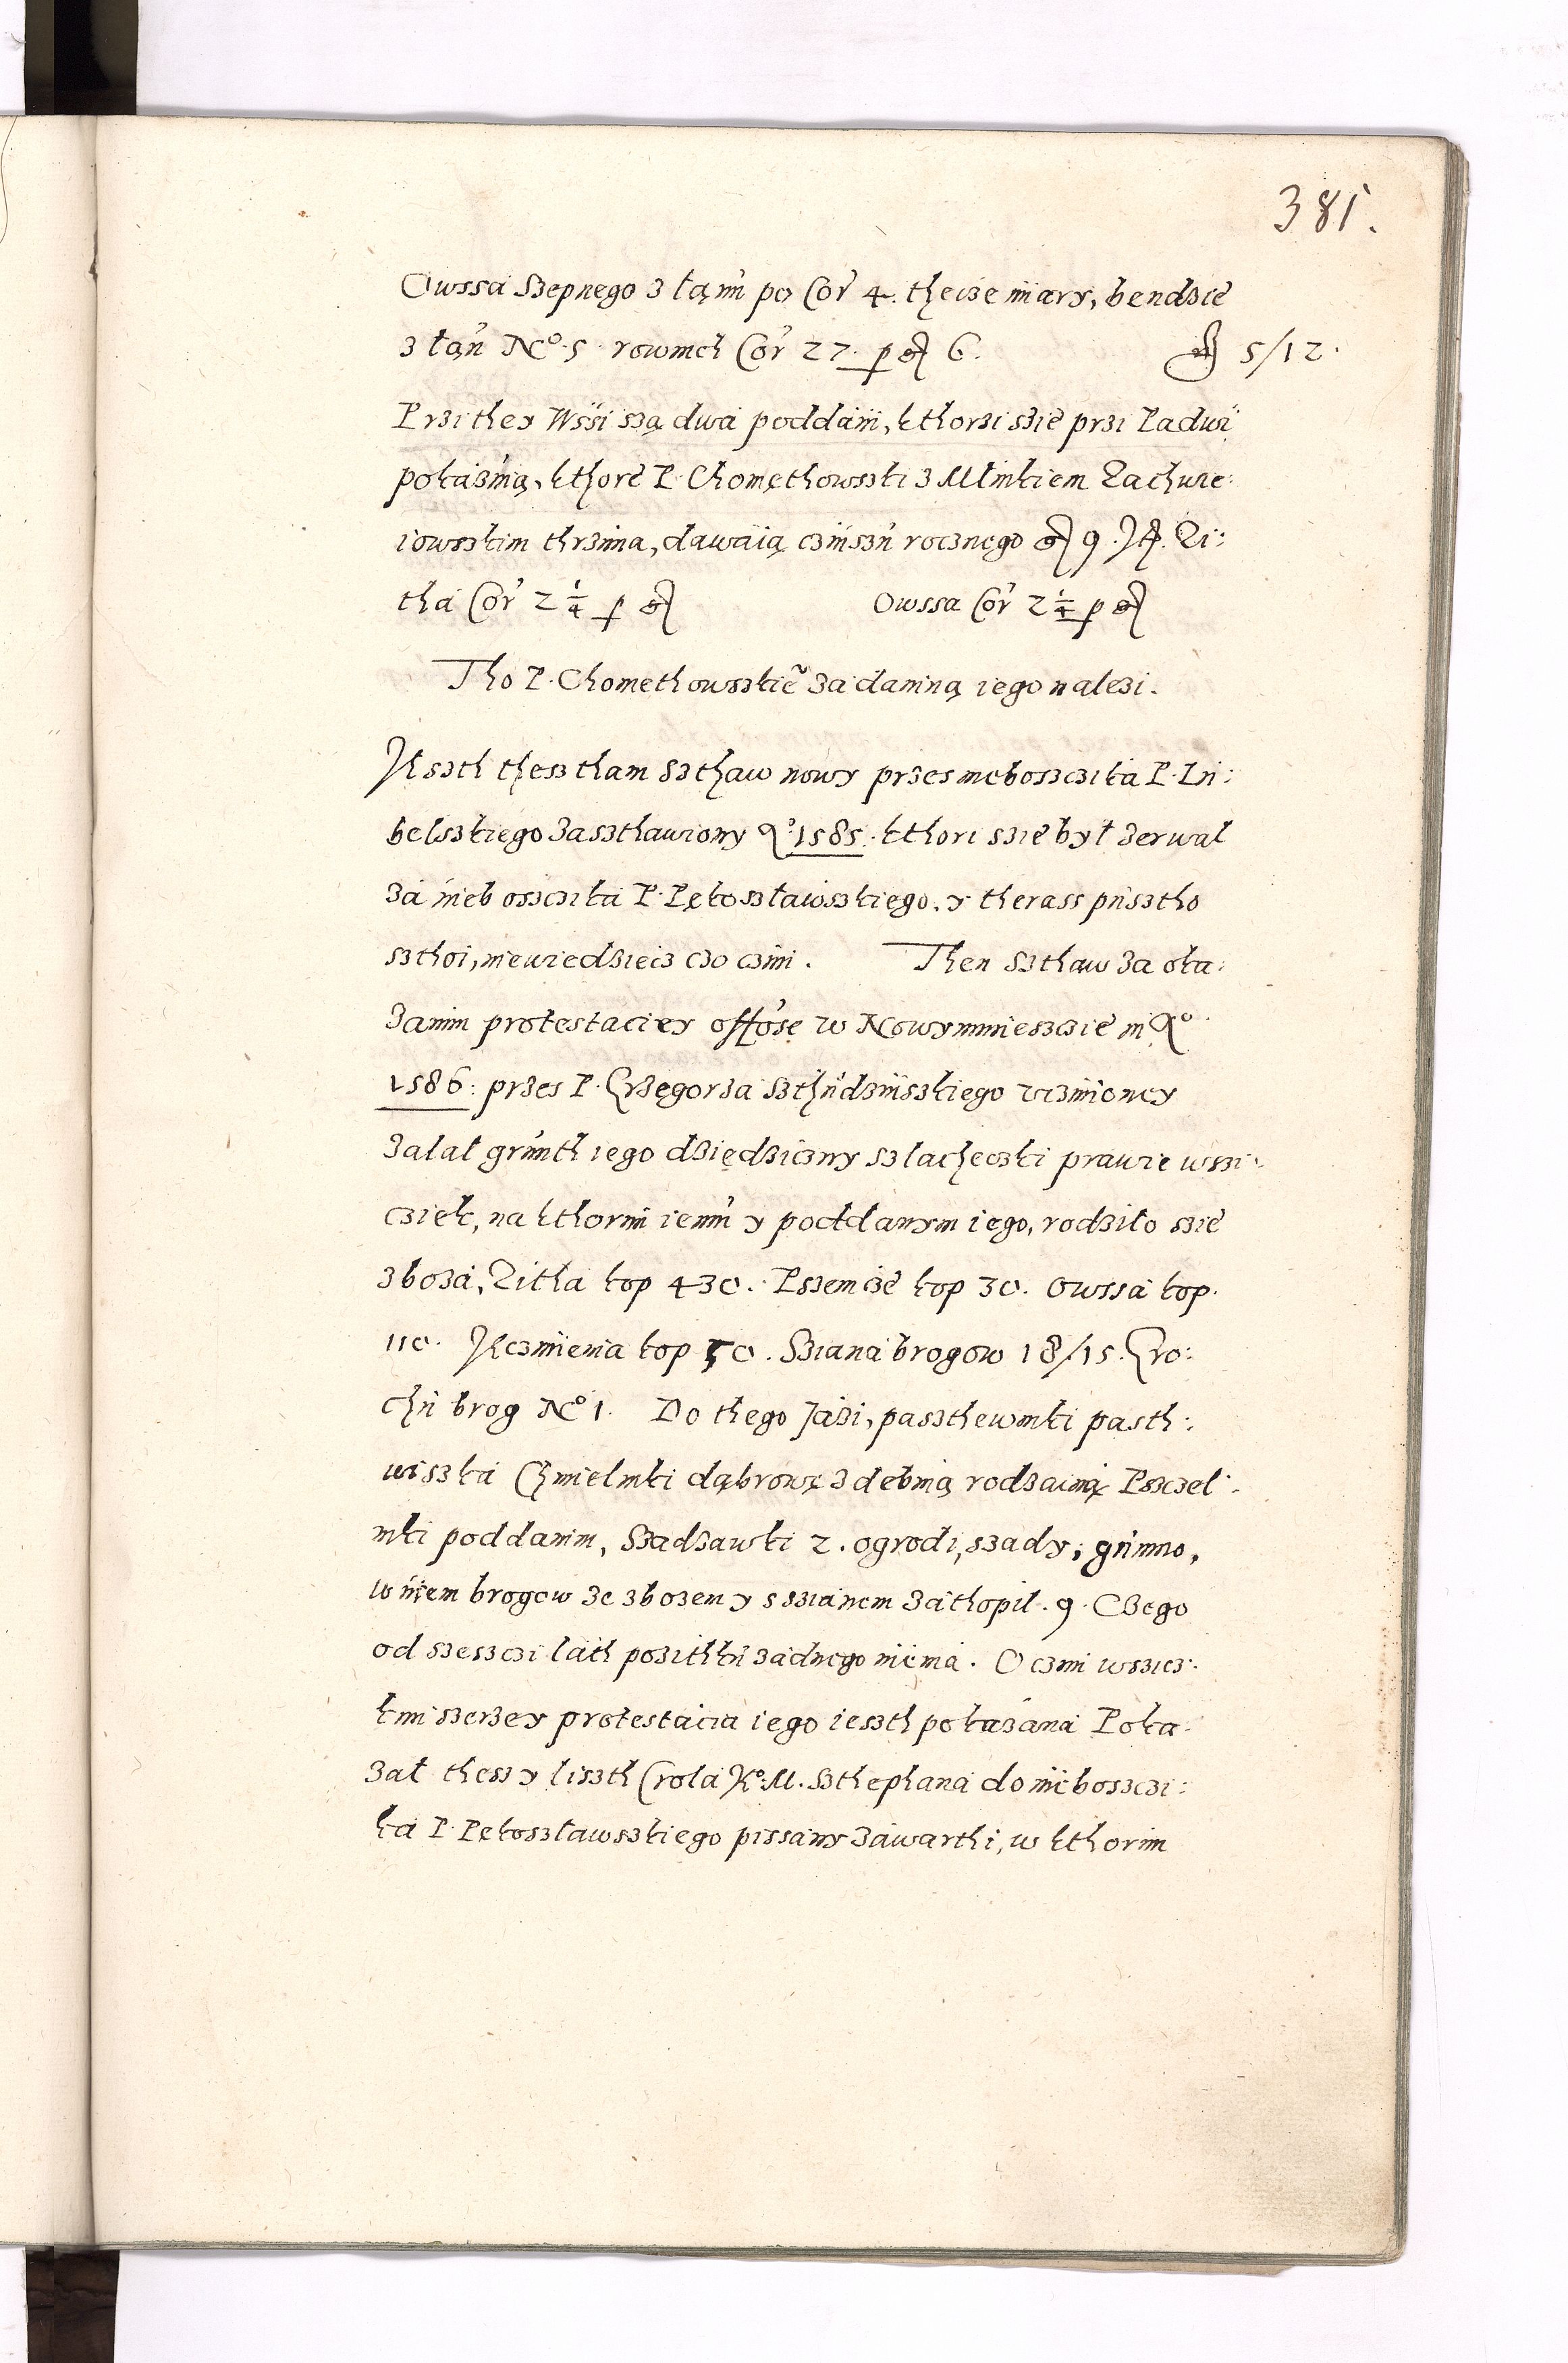 381.
Owssa Szepnego z łanu po Cor 4. theisze miary, bendzie
z łan No. 5. rownich Cor 27. p gr 6. 5/12.
Przi they Wssi szą dwa poddani, kthorzi szie przi Ładwi
pokazuią, kthore P. Chomęthowszki z Młinkiem Zachwie:
iowszkim thrzima, dawaią czinszu rocznego gr 9. Zi:
tha Cor 2 1/4 p gr Owssa Cor 2 1/4 p gr
Tho P. Chomethowszkie za daniną iego nalezi.
Jeszth thesz tham szthaw nowy przes nieboszczika P. Lu:
belszkiego zaszthawiony Ao 1585. kthori szie był zerwal
za nieboszczika P. Pękoszławszkiego, y therass pusztho
szthoi, niewiedziecz czo czini. Then szthaw za oka:
zanim protestaciey offose w Nowymmiesczie in Ao
1586: przes P. Grzegorza Szthudzinszkiego uczinioney
zalał grunth iego dziedziczny szlacheczki prawie wszi:
cziek, na kthorim iemu y poddanym iego, rodziło szie
zboza, Zitha kop 430. Pszenicze kop 30. Owssa kop.
110. Jeczmienia kop 50. Sziana brogow 18/15. Gro:
chu brog No 1. Do thego Jazi, paszthewniki pasth:
wiszka Chmielniki dąbrowę z debiną rodzainą Pszczel:
niki poddanim, Szadzawki 2. ogrodi, szady, gumno,
w niem brogow ze zbozem y s szianem zathopił. 9. Czego
od szesczi lath pozithku zadnego niema. O czim wszicz:
kim szerzey protestacia iego ieszth pokazana Poka:
zał thesz y liszth Crola Ko. M. Szthephana do nieboszczi:
ka P. Pękoszławszkiego pissany zawarthi, w kthorim